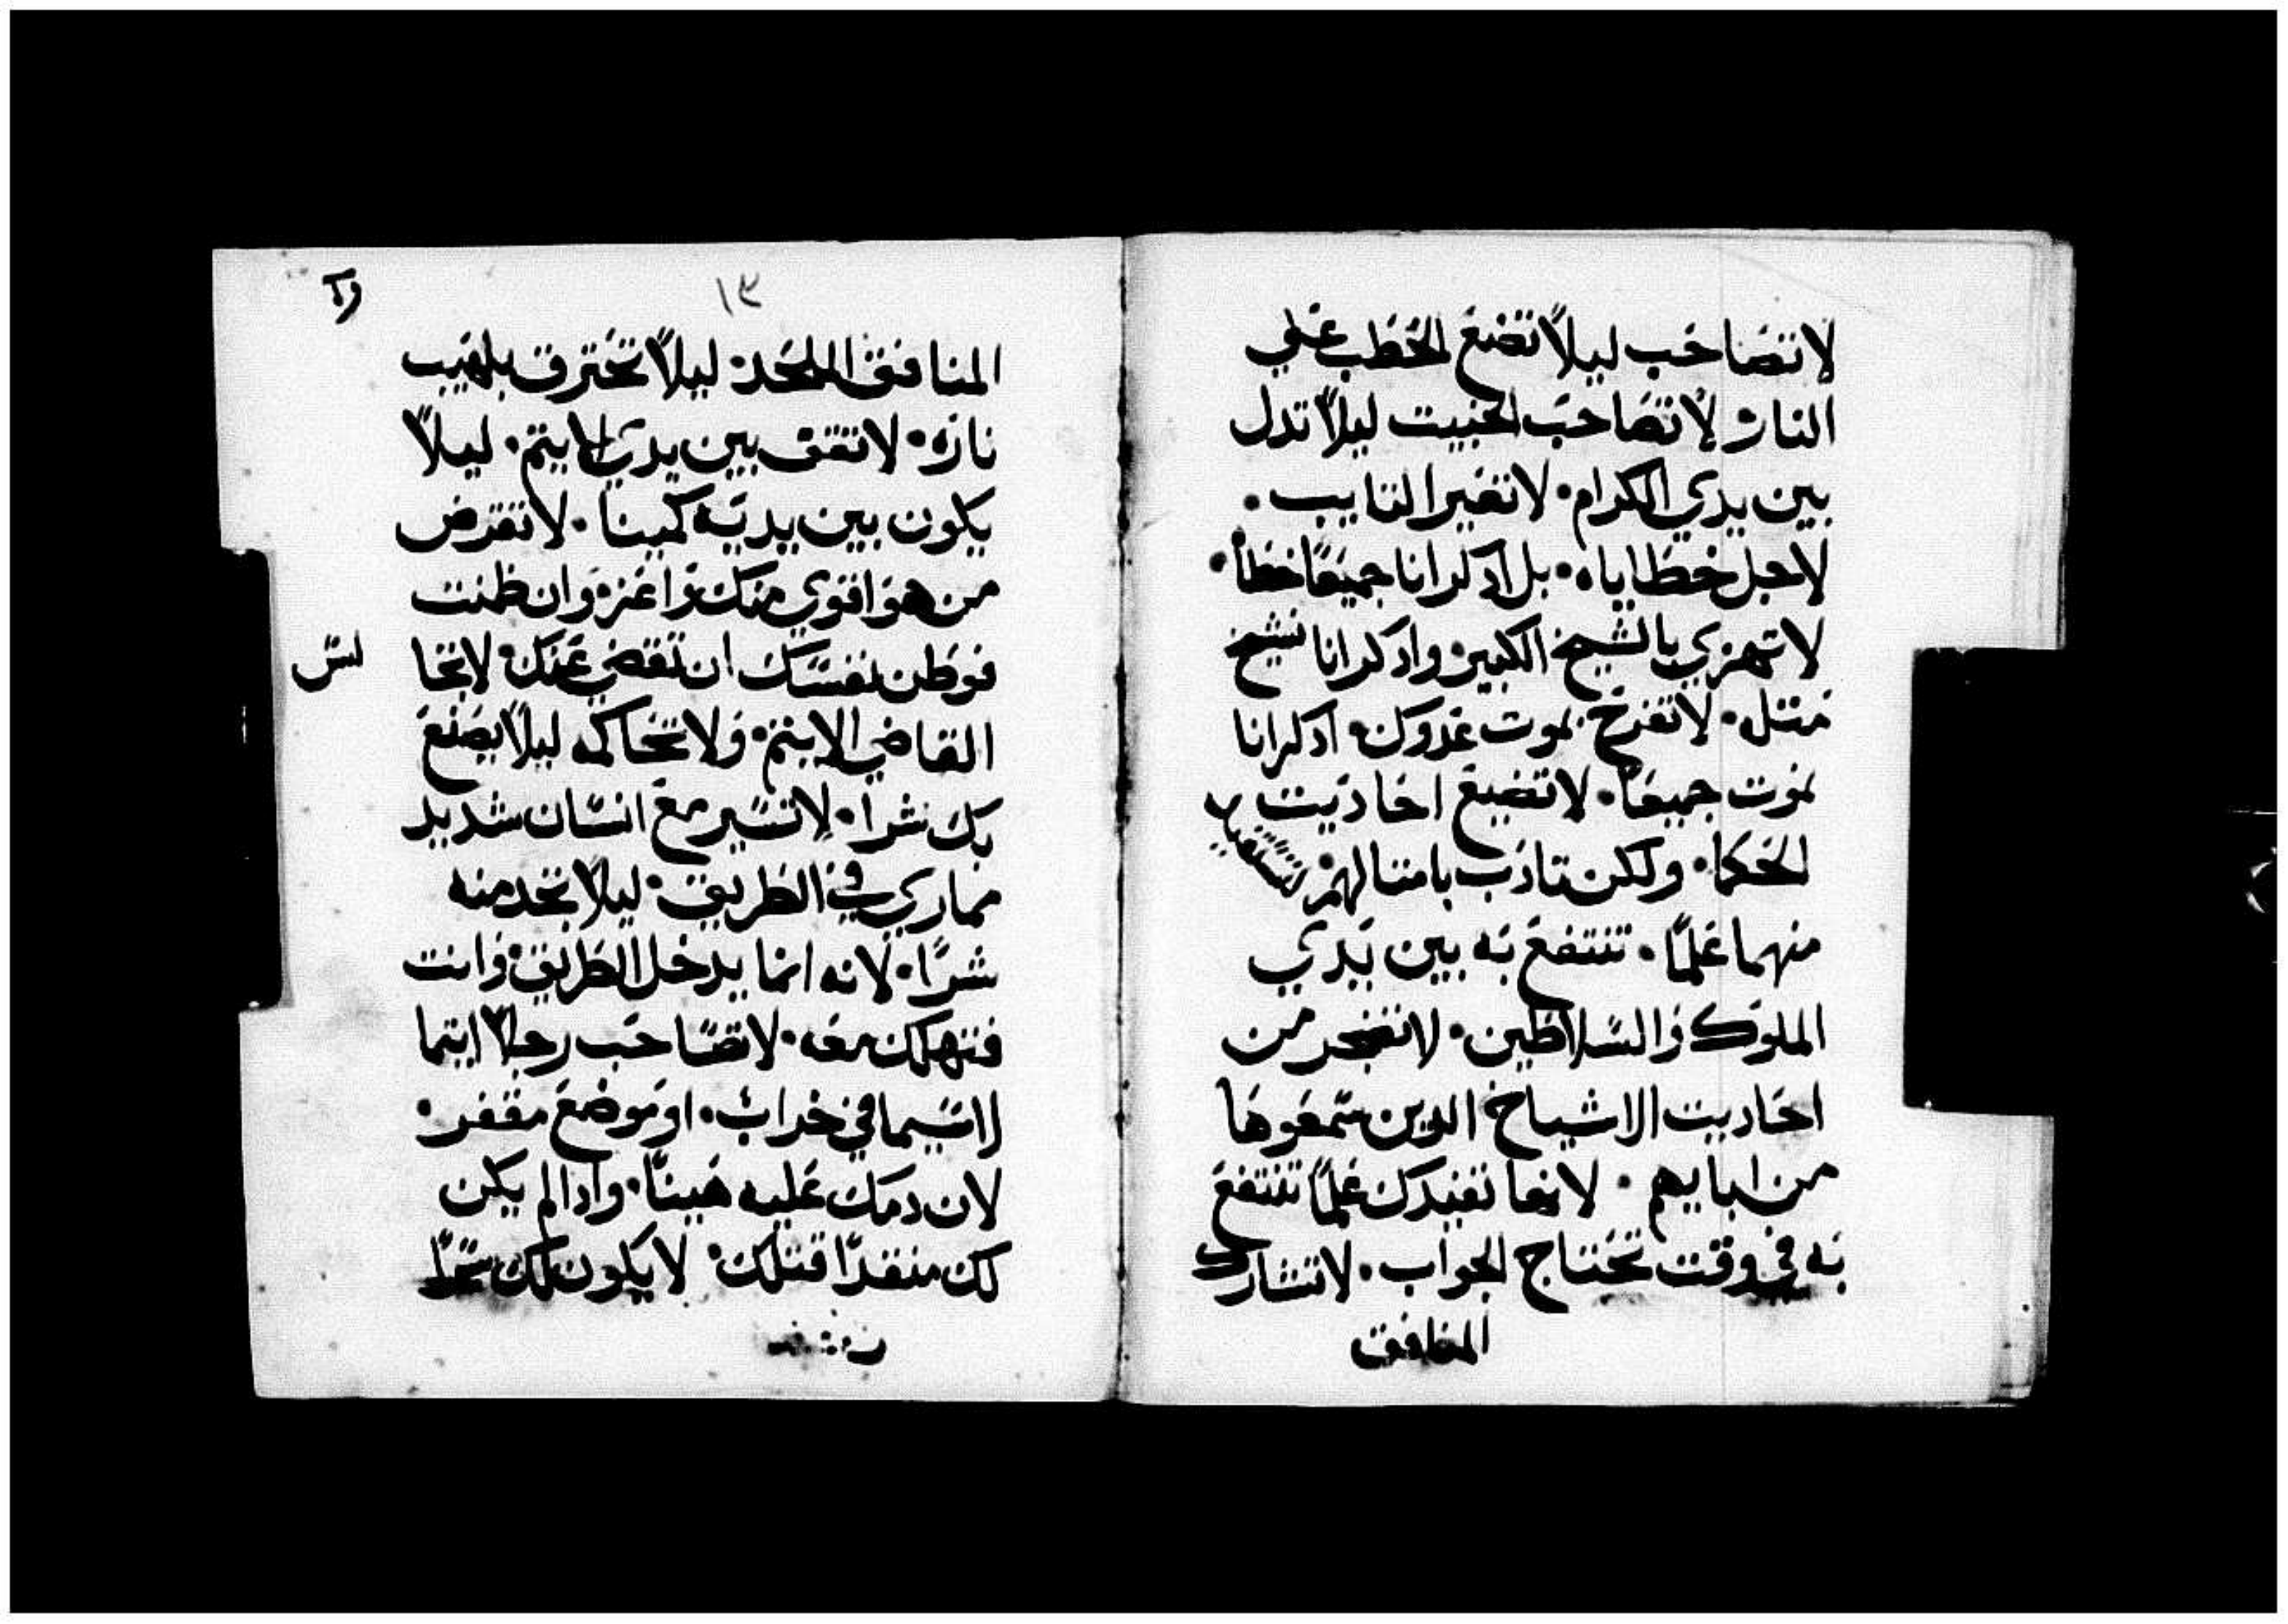 لا تصاحب ليلاً تضع الحطب علي
النار لا تصاحب الخبيت ليلاً تدل
بين يدي الكرام۰ لا تغير التايب۰
لاجل خطاياه۰ بل ادكر انا جميعًا خطاه۰
لا تهزي بالشيخ الكبير وادكر انا نشيخ
متله۰ لا تفرح بموت عدوك۰ ادكر انا
نموت جميعًا۰ لا تضيع احاديت
الحكما۰ ولكن تادب بامتالهم لتستفيد
منهما علمًا۰ تنتفع به بين يدي
الملوك والسلاطين۰ لا تضجر من
احاديت الاشياخ الدين سمعوها
من ابايهم۰ لانها تفيدك علمًا تنتفع
به في وقت تحتاج الجواب۰ لا تشارك
المنافق
١٣
المنافق الملحد۰ ليلاً تحترق بلهيب
ناره۰ لا تقف بين يدي الايتم۰ ليلاً
يكون بين يديه كمينا۰ لا تقرض
من هو اقوي منك واعز۰ وان ظننت
فوطن نفسك ان تقضي عنك۰ لا تحا
القاضي الايتم۰ ولا تحاكمه ليلاً يصنع
بك شرا۰ لا تسير مع انسان شديد
مماري في الطريق۰ ليلاً تجد منه
شرًا۰ لانه انما يدخل الطريق۰ وانت
فتهلك معه۰ لا تصاحب رجلاً ايتما
لا سيما في خراب۰ او موضع مقفر۰
لان دمك عليه هينًا۰ وادا لم يكن
لك منقدًا قتلك۰ لا يكون لك